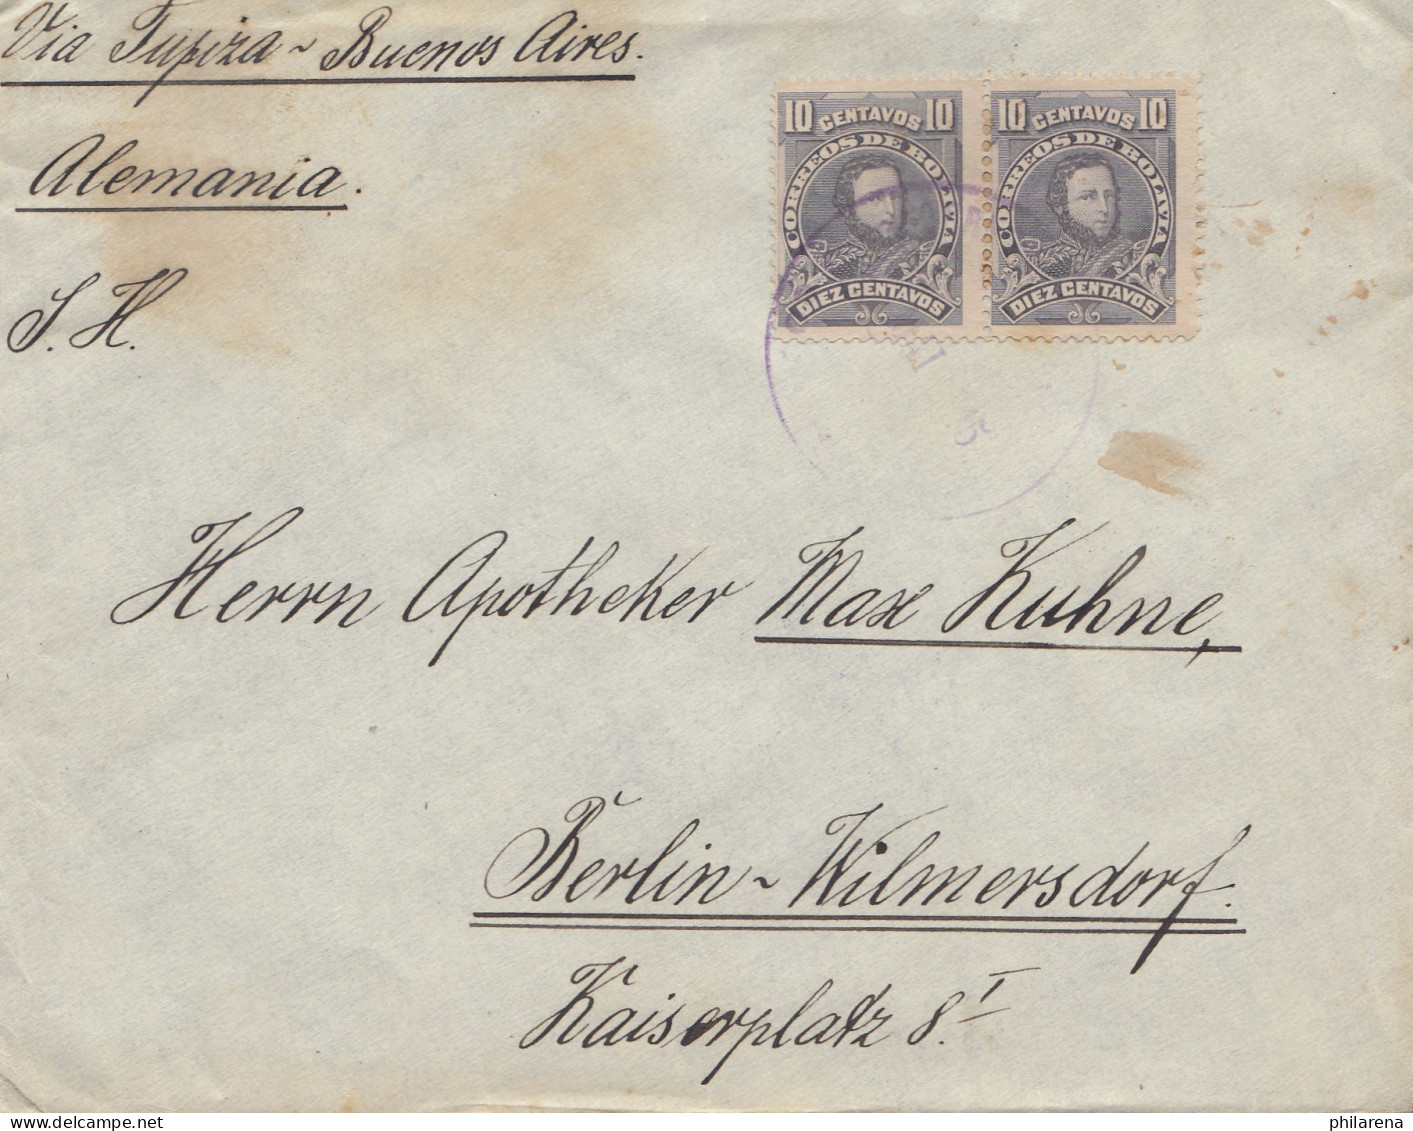 Via Tupiza ~ Buenos Aires.
Alemania.
S. H.
10 CENTAVOS 10
CORREOS DE BOLIVIA
DIEZ CENTAVOS
10 CENTAVOS 10
CORREOS DE BOLIVIA
DIEZ CENTAVOS
5
Herrn Apotheker Max Kuhne,
Berlin ~ Wilmersdorf.
Kaiserplatz 8.I
philarena